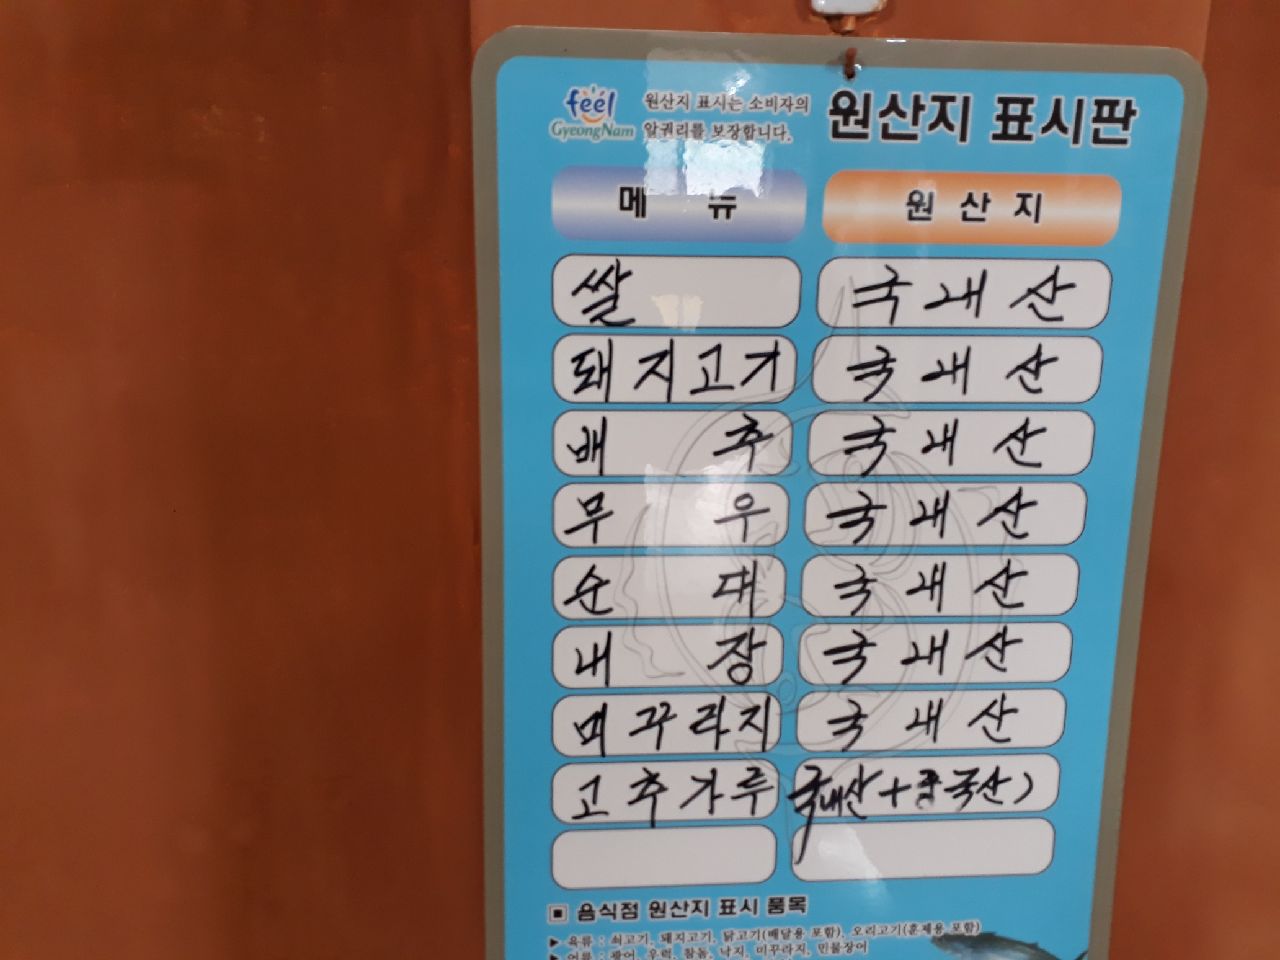 feel
GyeongNam
원산지 표시는 소비자의
알권리를 보장합니다.
원산지 표시판
메 뉴 원 산 지
쌀 국내산
돼지고기 국내산
배 추 국내산
무 우 국내산
순 대 국내산
내 장 국내산
미꾸라지 국내산
고추가루 국내산+중국산)
▣ 음식점 원산지 표시 품목
▶ 육류 : 쇠고기, 돼지고기, 닭고기(배달용 포함), 오리고기(훈제용 포함)
▶ 어류 : 광어, 우럭, 참돔, 낙지, 미꾸라지, 민물장어